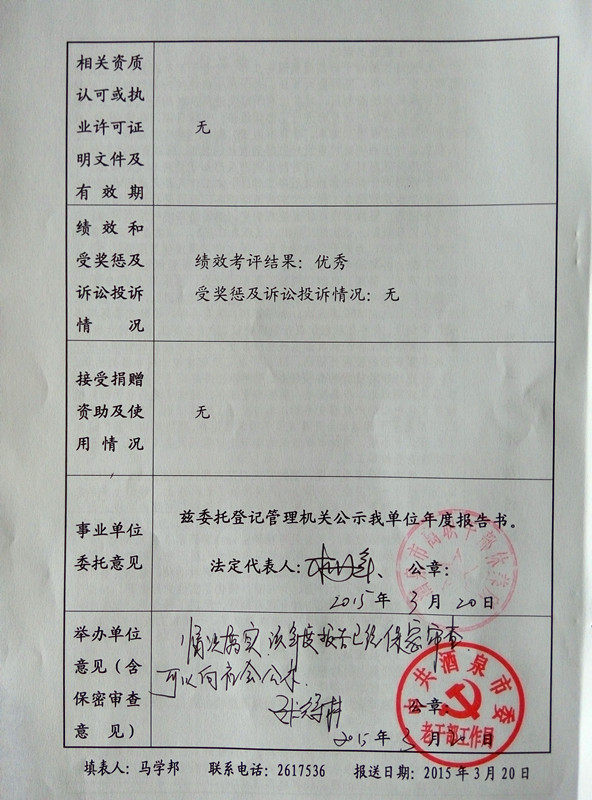 相关资质
认可或执
业许可证
明文件及
有效期
无
绩效和
受奖惩及
诉讼投诉
情况
绩效考评结果：优秀
受奖惩及诉讼投诉情况：无
接受捐赠
资助及使
用情况
无
事业单位
委托意见
兹委托登记管理机关公示我单位年度报告书。
法定代表人：
公章：
2015年 3月 20日
举办单位
意见（含
保密审查
意见）
情况属实，该年度报告已经保密审查
可以向社会公示。
公章：
2015年 3月 20日
中共酒泉市委
老干部工作局
填表人：马学邦 联系电话：2617536 报送日期：2015年3月20日